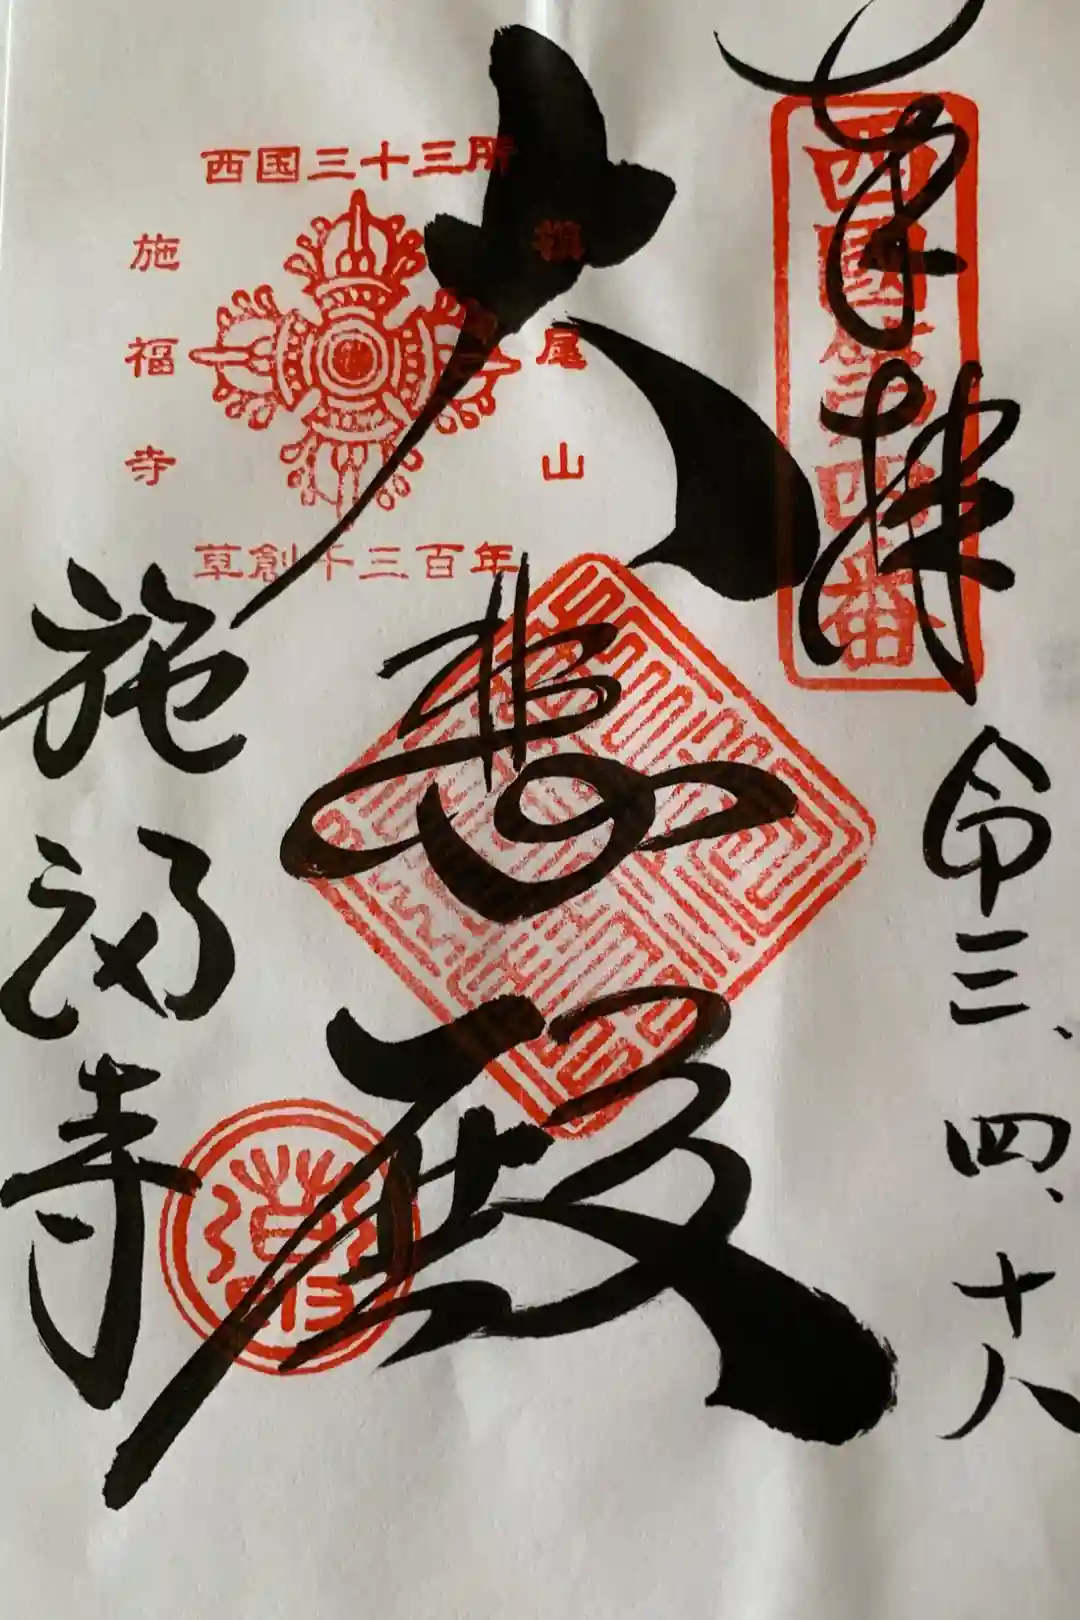 奉拝
西國第四番
令三、四、十八
大悲殿
西国三十三所
槙尾山
施福寺
草創千三百年
施福寺